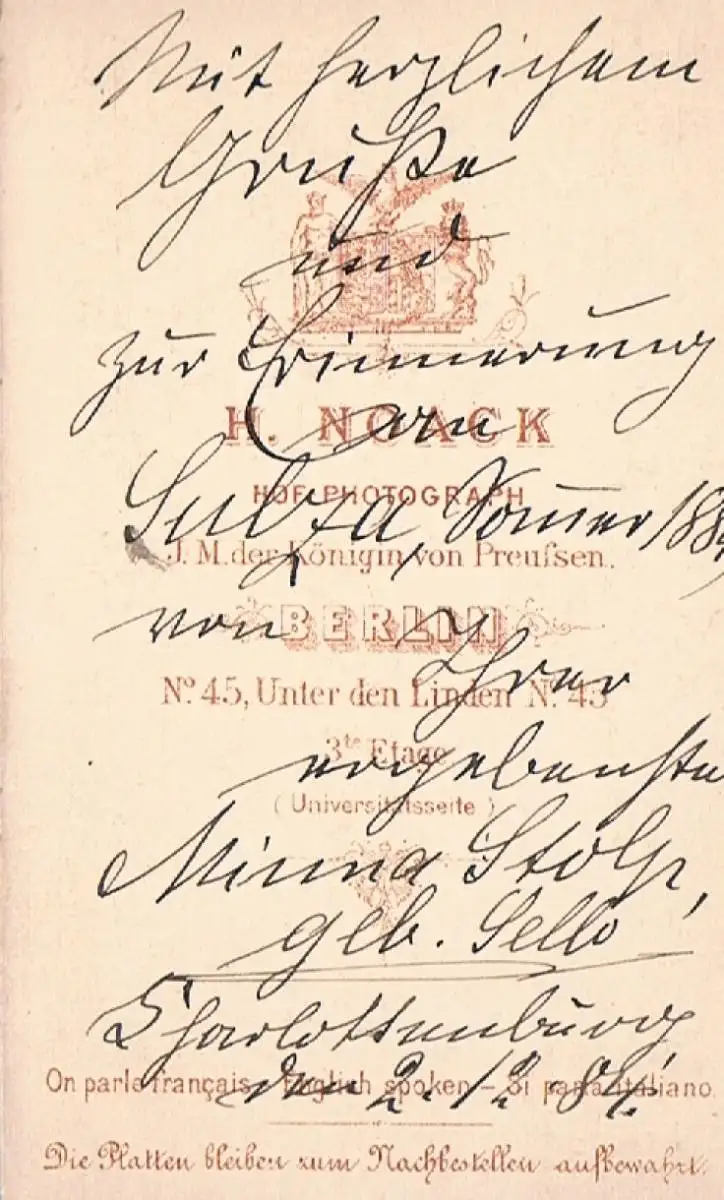 Mit herzlichem
Gruße
und
zur Erinnerung
an
H. NOACK
HOF-PHOTOGRAPH
Sulza, Sommer 188
J. M. der Königin von Preußsen.
von Ihrer
BERLIN
No. 45, Unter den Linden No. 45
3te Etage
ergebenste
(Universitätsseite)
Minna Stolp,
geb. Sello
Charlottenburg
den 2. 12. 84.
On parle français - English spoken - Si parla italiano.
Die Platten bleiben zum Nachbestellen aufbewahrt.